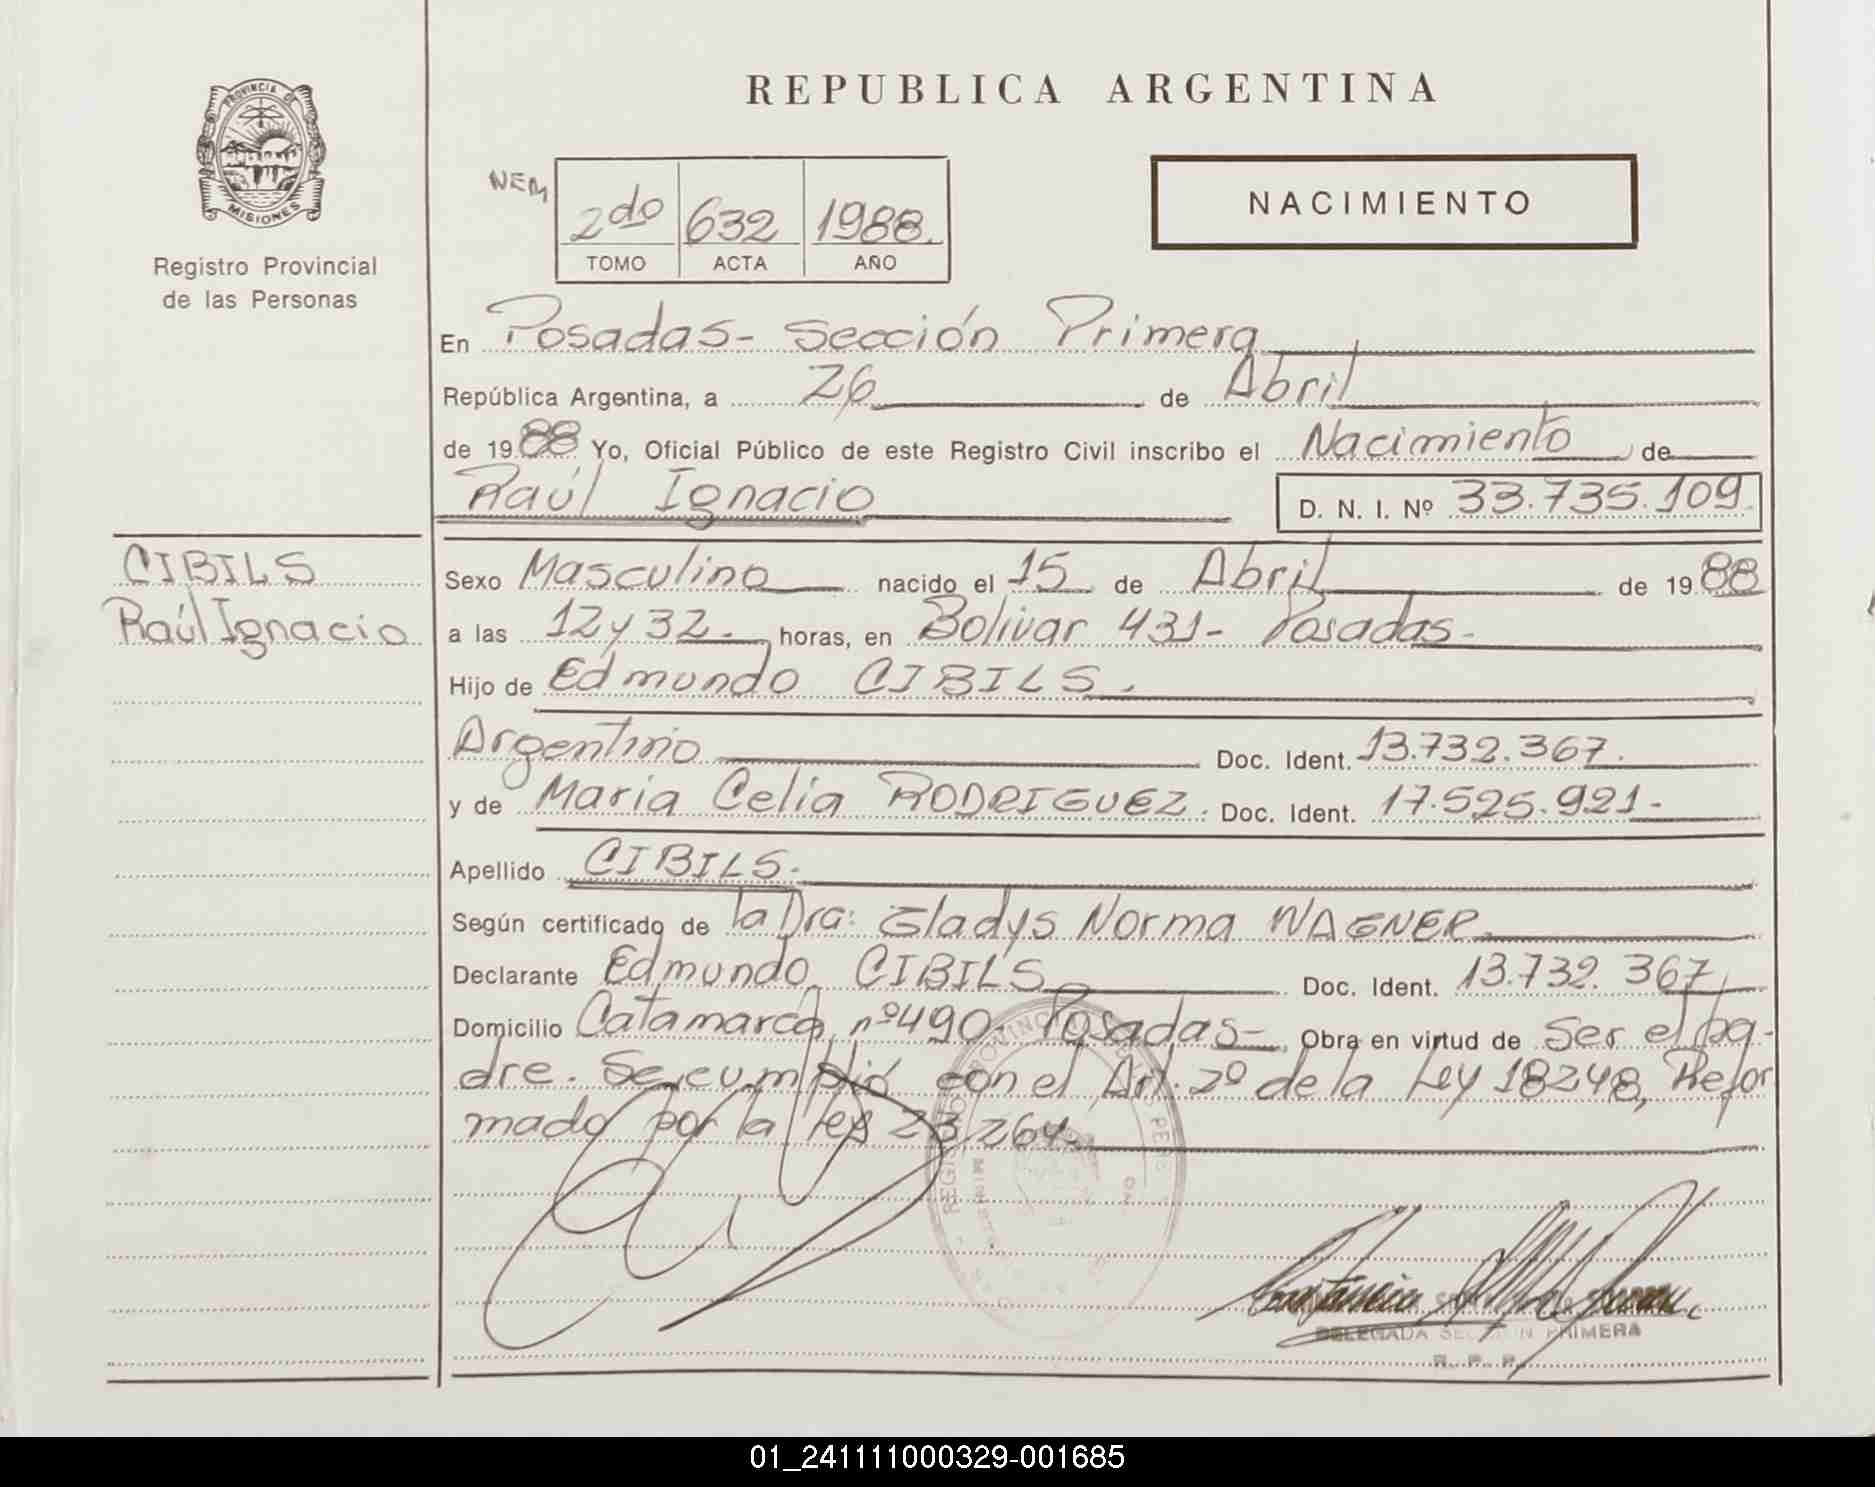 REPUBLICA ARGENTINA
PROVINCIA DE
MISIONES
Registro Provincial
de las Personas
NEM
2do 632 1988.
TOMO ACTA AÑO
NACIMIENTO
En Posadas- Sección Primera
República Argentina, a 26 de Abril
de 1988 Yo, Oficial Público de este Registro Civil inscribo el Nacimiento de
Raúl Ignacio D. N. I. Nº 33.735.109.
CIBILS
Raúl Ignacio
Sexo Masculino nacido el 15 de Abril de 1988
a las 12 y 32. horas, en Bolivar 431- Posadas-
Hijo de Edmundo CIBILS.
Argentino Doc. Ident. 13.732.367.
y de Maria Celia RODRIGUEZ. Doc. Ident. 17.525.921-
Apellido CIBILS.
Según certificado de la Dra: Gladys Norma WAGNER
Declarante Edmundo CIBILS Doc. Ident. 13.732.367
Domicilio Catamarca nº490- Posadas- Obra en virtud de Ser el pa-
dre. Se cumplió con el Art. 2º de la Ley 18248, Refor
mado por la ley 23.264.
DELEGADA SECCION PRIMERA
R. P. P.
01_241111000329-001685